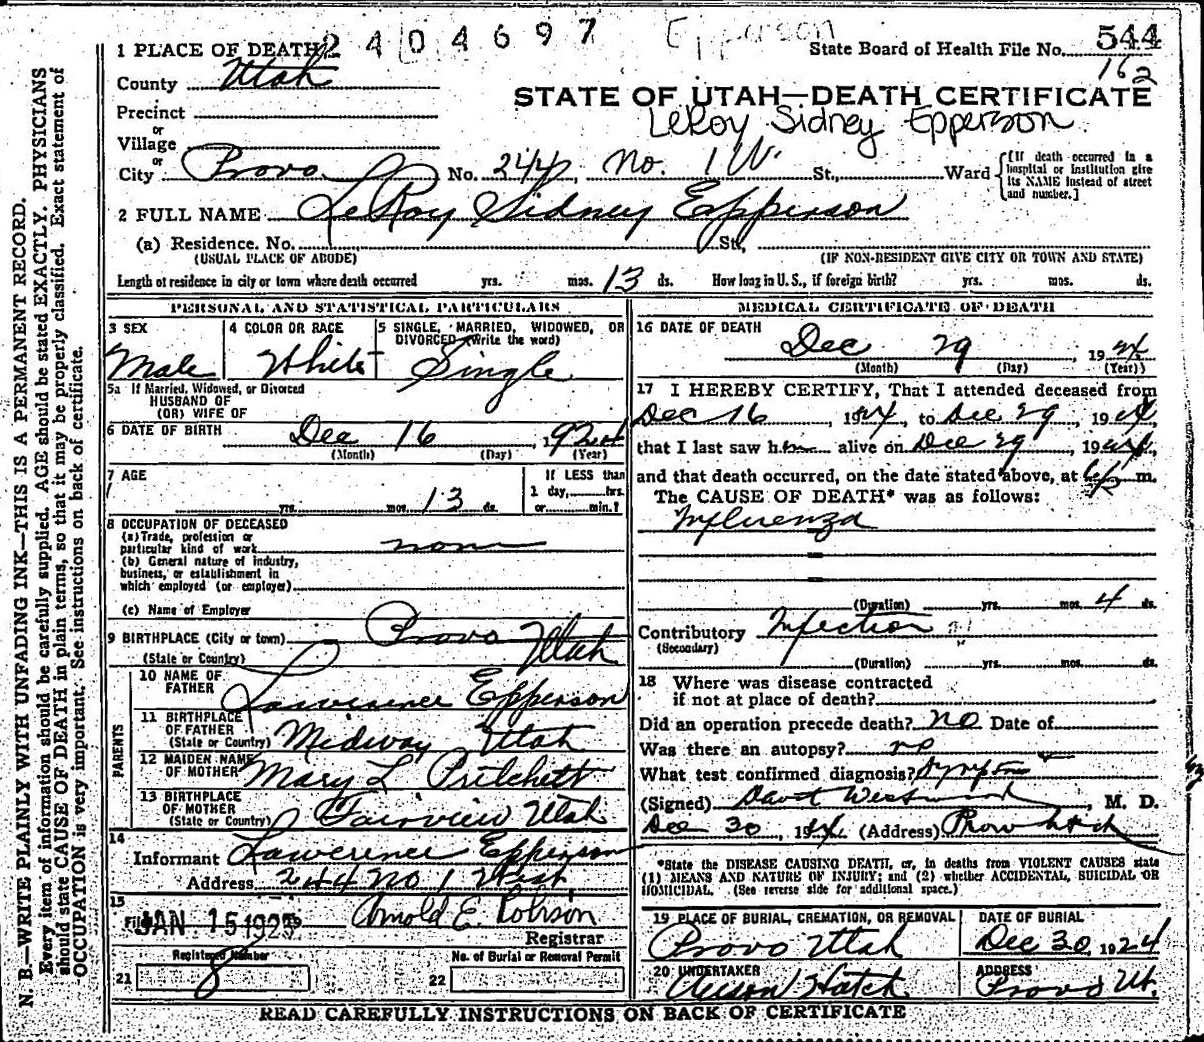 2404697 Epperson
1 PLACE OF DEATH State Board of Health File No. 544
County Utah 162
STATE OF UTAH—DEATH CERTIFICATE
Precinct
LeRoy Sidney Epperson
or
Village
or
City Provo No. 244 No. 1 W. St., Ward {[If death occurred in a hospital or institution give its NAME instead of street and number.]
2 FULL NAME LeRoy Sidney Epperson
(a) Residence. No. St.,
(USUAL PLACE OF ABODE) (IF NON-RESIDENT GIVE CITY OR TOWN AND STATE)
Length of residence in city or town where death occurred yrs. mos. 13 ds. How long in U.S., if foreign birth? yrs. mos. ds.
PERSONAL AND STATISTICAL PARTICULARS
3 SEX
Male
4 COLOR OR RACE
White
5 SINGLE, MARRIED, WIDOWED, OR
DIVORCED (Write the word)
Single
5a If Married, Widowed, or Divorced
HUSBAND OF
(OR) WIFE OF
6 DATE OF BIRTH Dec 16 1924
(Month) (Day) (Year)
7 AGE
yrs. mos. 13 ds.
If LESS than
1 day, hrs.
or min.?
8 OCCUPATION OF DECEASED
(a) Trade, profession or
particular kind of work none
(b) General nature of industry,
business, or establishment in
which employed (or employer)
(c) Name of Employer
9 BIRTHPLACE (City or town) Provo
(State or Country) Utah
PARENTS
10 NAME OF
FATHER Lawerence Epperson
11 BIRTHPLACE
OF FATHER
(State or Country) Midway Utah
12 MAIDEN NAME
OF MOTHER Mary L Pritchett
13 BIRTHPLACE
OF MOTHER
(State or Country) Fairview Utah
14
Informant Lawerence Epperson
Address 244 No 1 West
15
Filed JAN 15 1925 Arnold E. Robison
Registrar
Registered Number No. of Burial or Removal Permit
21 8 22
MEDICAL CERTIFICATE OF DEATH
16 DATE OF DEATH
Dec 29, 1924
(Month) (Day) (Year)
17 I HEREBY CERTIFY, That I attended deceased from
Dec 16, 1924, to Dec 29, 1924,
that I last saw him alive on Dec 29, 1924,
and that death occurred, on the date stated above, at 6 p m.
The CAUSE OF DEATH* was as follows:
Influenza
(Duration) yrs. mos. 4 ds.
Contributory Infection
(Secondary)
(Duration) yrs. mos. ds.
18 Where was disease contracted
if not at place of death?
Did an operation precede death? no Date of
Was there an autopsy? no
What test confirmed diagnosis? Symptoms
(Signed) Westwood, M. D.
Dec 30, 1924 (Address) Provo Utah
*State the DISEASE CAUSING DEATH, or, in deaths from VIOLENT CAUSES state
(1) MEANS AND NATURE OF INJURY; and (2) whether ACCIDENTAL, SUICIDAL OR
HOMICIDAL. (See reverse side for additional space.)
19 PLACE OF BURIAL, CREMATION, OR REMOVAL
Provo Utah
DATE OF BURIAL
Dec 30, 1924
20 UNDERTAKER
Hatch
ADDRESS
Provo Ut.
READ CAREFULLY INSTRUCTIONS ON BACK OF CERTIFICATE
N. B.—WRITE PLAINLY WITH UNFADING INK—THIS IS A PERMANENT RECORD.
Every item of information should be carefully supplied. AGE should be stated EXACTLY. PHYSICIANS
should state CAUSE OF DEATH in plain terms, so that it may be properly classified. Exact statement of
OCCUPATION is very important. See instructions on back of certificate.